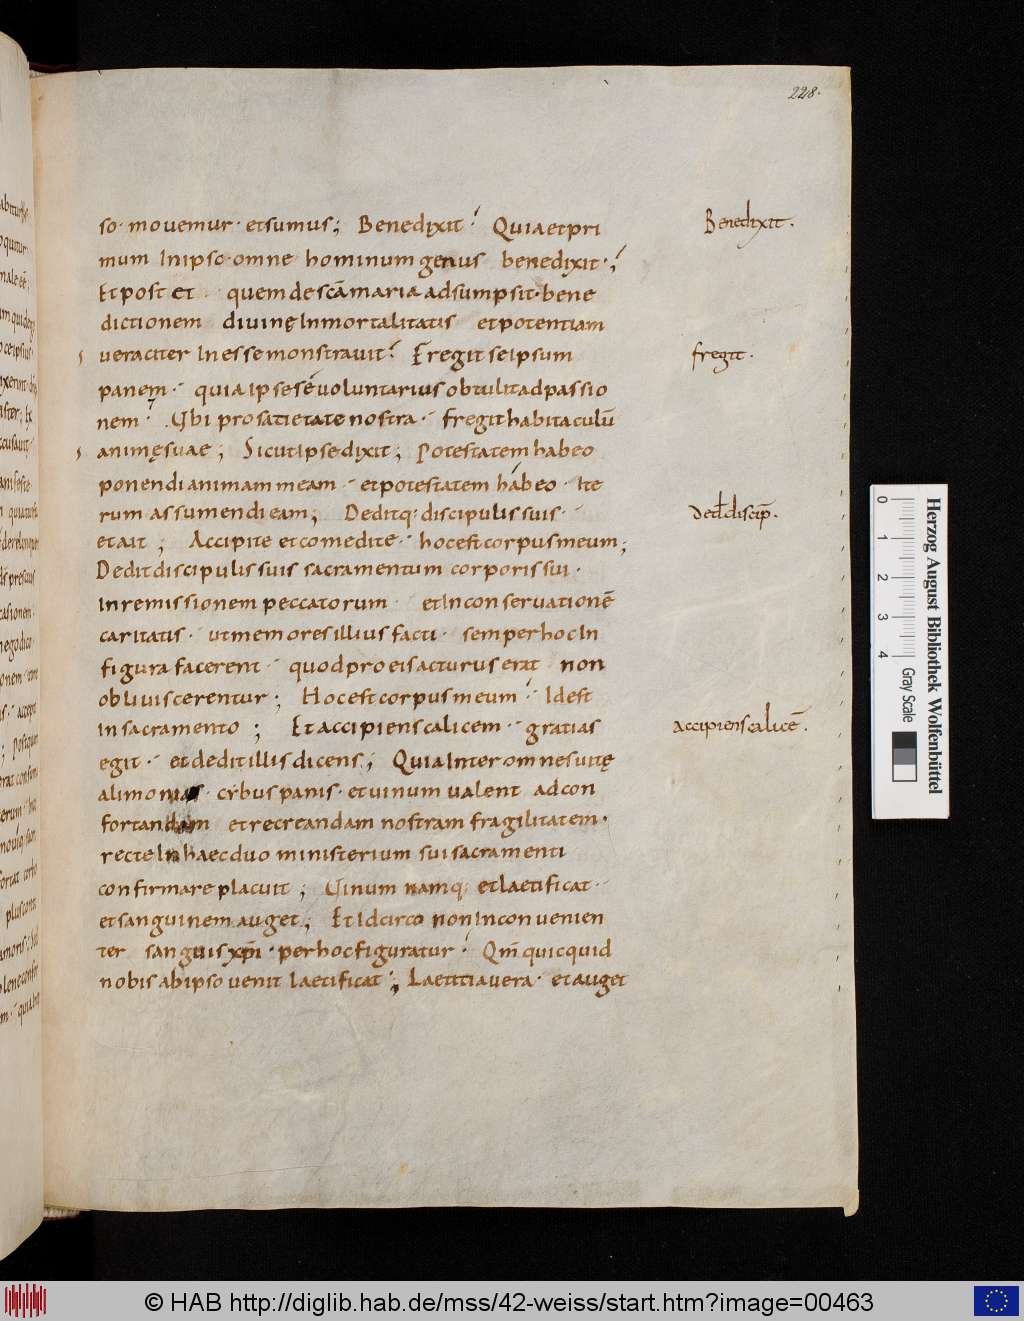 228.
so· movemur· et sumus; Benedixit· Quia et pri
Benedixit.
mum In ipso· omne hominum genus benedixit·;
Et post et quem de scā maria adsumpsit· bene
dictionem divinę Inmortalitatis et potentiam
veraciter In esse monstravit· Fregit se ipsum
fregit.
panem· quia ipse sé voluntarius obtulit ad passio
nem· Ubi pro satietate nostra· fregit habitaculū
animę suae; Sicut Ipse dixit; Potestatem habeo
ponendi animam meam· et potestatem hábeo· Ite
rum assumendi eam; Deditq: discipulis suis·
Ded̄ discip̄.
et ait; Accipite et comedite· hoc est corpus meum;
Dedit discipulis suis sacramentum corporis sui·
In remissionem peccatorum et In conservationē
caritatis· ut memores illius facti· semper hoc In
figura facerent· quod pro eis acturus erat non
obliviscerentur; Hoc est corpus meum· Id est
In sacramento; Et accipiens calicem· gratias
accipiens calicē.
egit· et dedit illis dicens; Quia Inter omnes vitę
alimonias· cybus panis· et vinum valent ad con
fortandam et recreandam nostram fragilitatem·
recte In haec duo ministerium sui sacramenti
confirmare placuit; Vinum namq: et laetificat·
et sanguinem auget; Et Idcirco non Inconvenien
ter sanguis xp̄i· per hoc figuratur· Qm̄ quicquid
nobis ab ipso venit laetificat; Laetitia vera· et auget
Herzog August Bibliothek Wolfenbüttel
0 1 2 3 4 Gray Scale
© HAB http://diglib.hab.de/mss/42-weiss/start.htm?image=00463